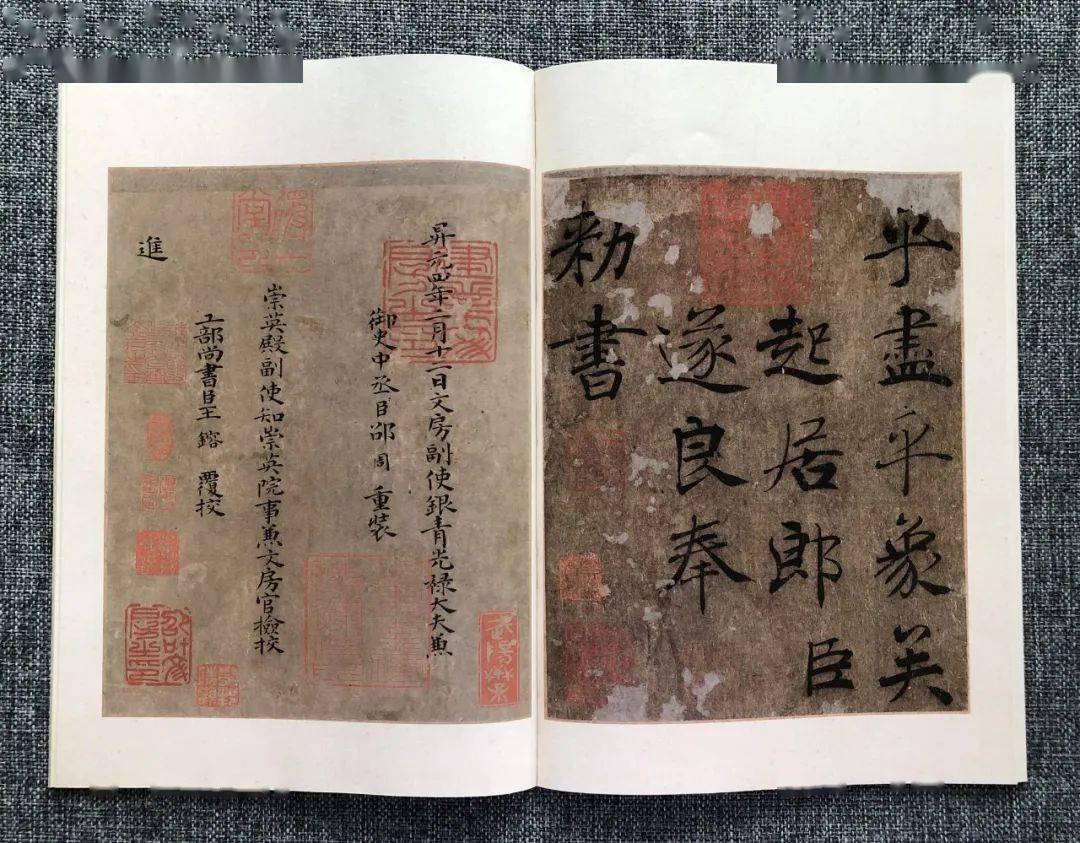 乎盡乎象矣
起居郎臣
遂良奉
勑書
昇元四年二月十二日文房副使銀青光祿大夫兼
御史中丞臣邵周重裝
崇英殿副使知崇英院事兼文房官檢挍
工部尚書臣王鎔覆挍
進